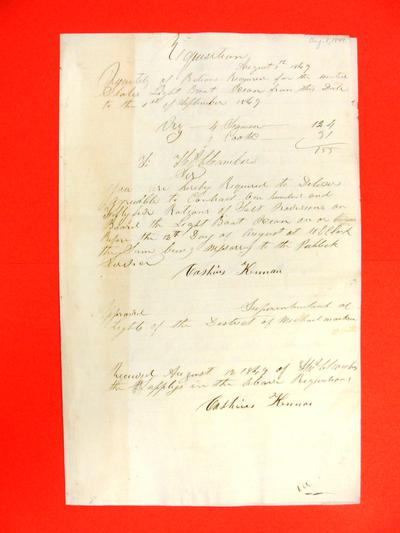 Requisition
August 1st 1849
Quantity of Rations Required for the United
States Light Boat Ocean from this Date
to the 1st of September 1849
Viz 4 Seamen 124
1 Cook 31
155
To Thos Chambers
Sir
You are hereby Required to Deliver
agreeable to Contract One hundred and
fifty five Rations of Salt Provisions on
Board the Light Boat Ocean on or
Before the 12th Day of August at 10 O Clock
the Same being necessary to the Publick
Service
Kennan
Approved Superintendent of
Lights of the District of Michilimackinac
Received August 12 1849 of Thos Chambers
the Supplys in the above Requisition
Kennan